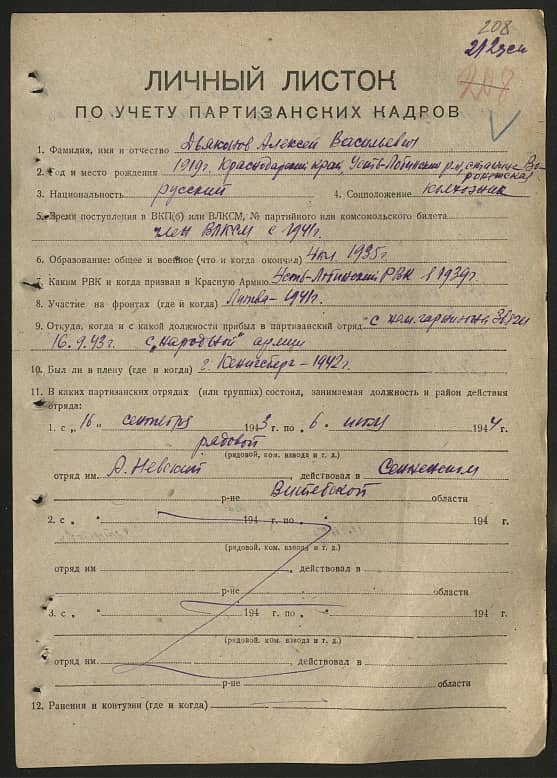 208
212 зсп
208
ЛИЧНЫЙ ЛИСТОК
ПО УЧЕТУ ПАРТИЗАНСКИХ КАДРОВ
1. Фамилия, имя и отчество Дьяконов Алексей Васильевич
2. Год и место рождения 1919г. Краснодарский край, Усть-Лабинский р-н, станица Во-
ронежская
3. Национальность русский 4. Соцположение колхозник
5. Время поступления в ВКП(б) или ВЛКСМ, № партийного или комсомольского билета
член ВЛКСМ с 1941г.
6. Образование: общее и военное (что и когда окончил) 4 кл. 1935г
7. Каким РВК и когда призван в Красную Армию Усть-Лабинский РВК в 1939г.
8. Участие на фронтах (где и когда) Литва - 1941г.
9. Откуда, когда и с какой должности прибыл в партизанский отряд с нем. гарнизона
16.9.43г. с „народной" армии
10. Был ли в плену (где и когда) г. Кенигсберг - 1942г.
11. В каких партизанских отрядах (или группах) состоял, занимаемая должность и район действия
отряда:
1. с „16" сентября 1943 г. по „6. июля 1944 г.
рядовой
(рядовой, ком. взвода и т. д.)
отряд им. А. Невский, действовал в Сенненском
р-не Витебской области
2. с „ " 194 г. по „ " 194 г.
(рядовой, ком. взвода и т. д.)
отряд им. , действовал в
р-не области
3. с „ " 194 г. по „ " 194 г.
(рядовой, ком. взвода и т. д.)
отряд им. , действовал в
р-не области
12. Ранения и контузии (где и когда)